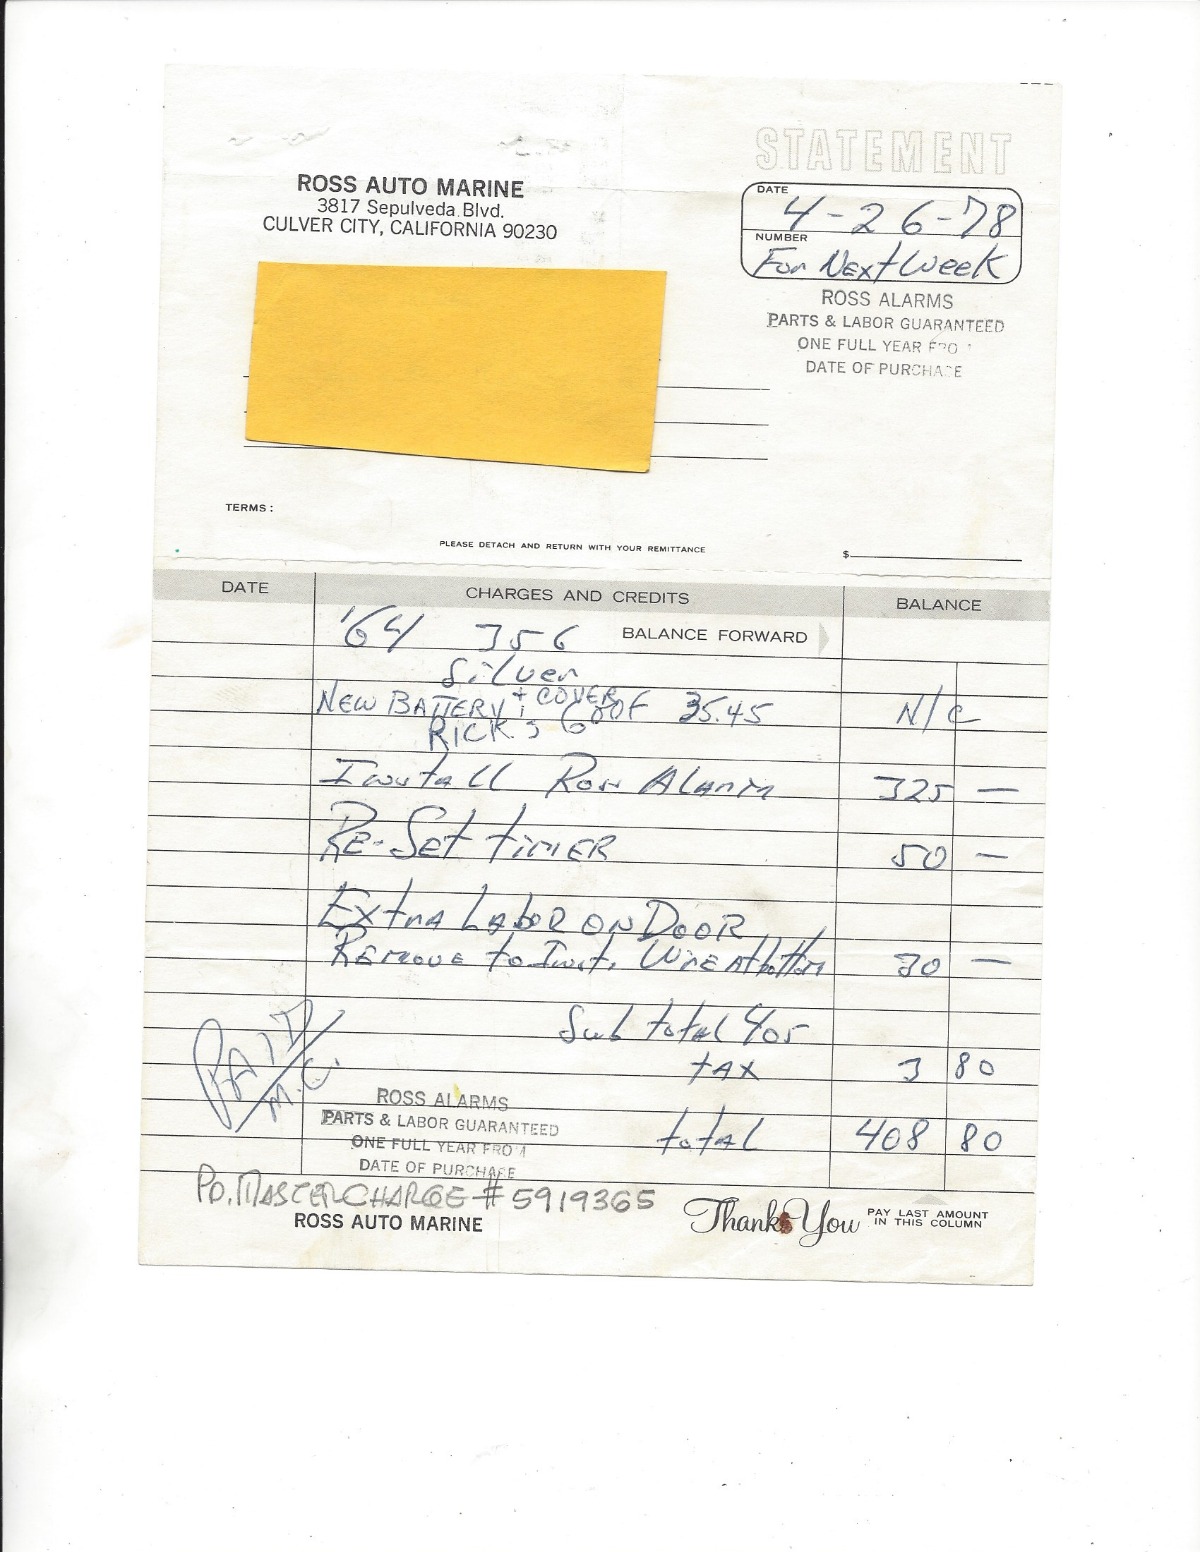 STATEMENT
ROSS AUTO MARINE
3817 Sepulveda Blvd.
CULVER CITY, CALIFORNIA 90230
DATE
4-26-78
NUMBER
For Next Week
ROSS ALARMS
PARTS & LABOR GUARANTEED
ONE FULL YEAR FROM
DATE OF PURCHASE
TERMS:
PLEASE DETACH AND RETURN WITH YOUR REMITTANCE
$
DATE CHARGES AND CREDITS BALANCE
'64 356 BALANCE FORWARD
Silver
NEW BATTERY + COVER 35.45 N/C
RICK'S GOOF
Install Ross Alarm 325 —
RE-Set timER 50 —
Extra Labor on DooR
Remove to Inst. Wire At bottom 30 —
Sub total 405
tAX 3 80
PAID
M.C.
ROSS ALARMS
PARTS & LABOR GUARANTEED
ONE FULL YEAR FROM
DATE OF PURCHASE
total 408 80
PD. MASTERCHARGE # 5919365
ROSS AUTO MARINE
Thank You
PAY LAST AMOUNT
IN THIS COLUMN